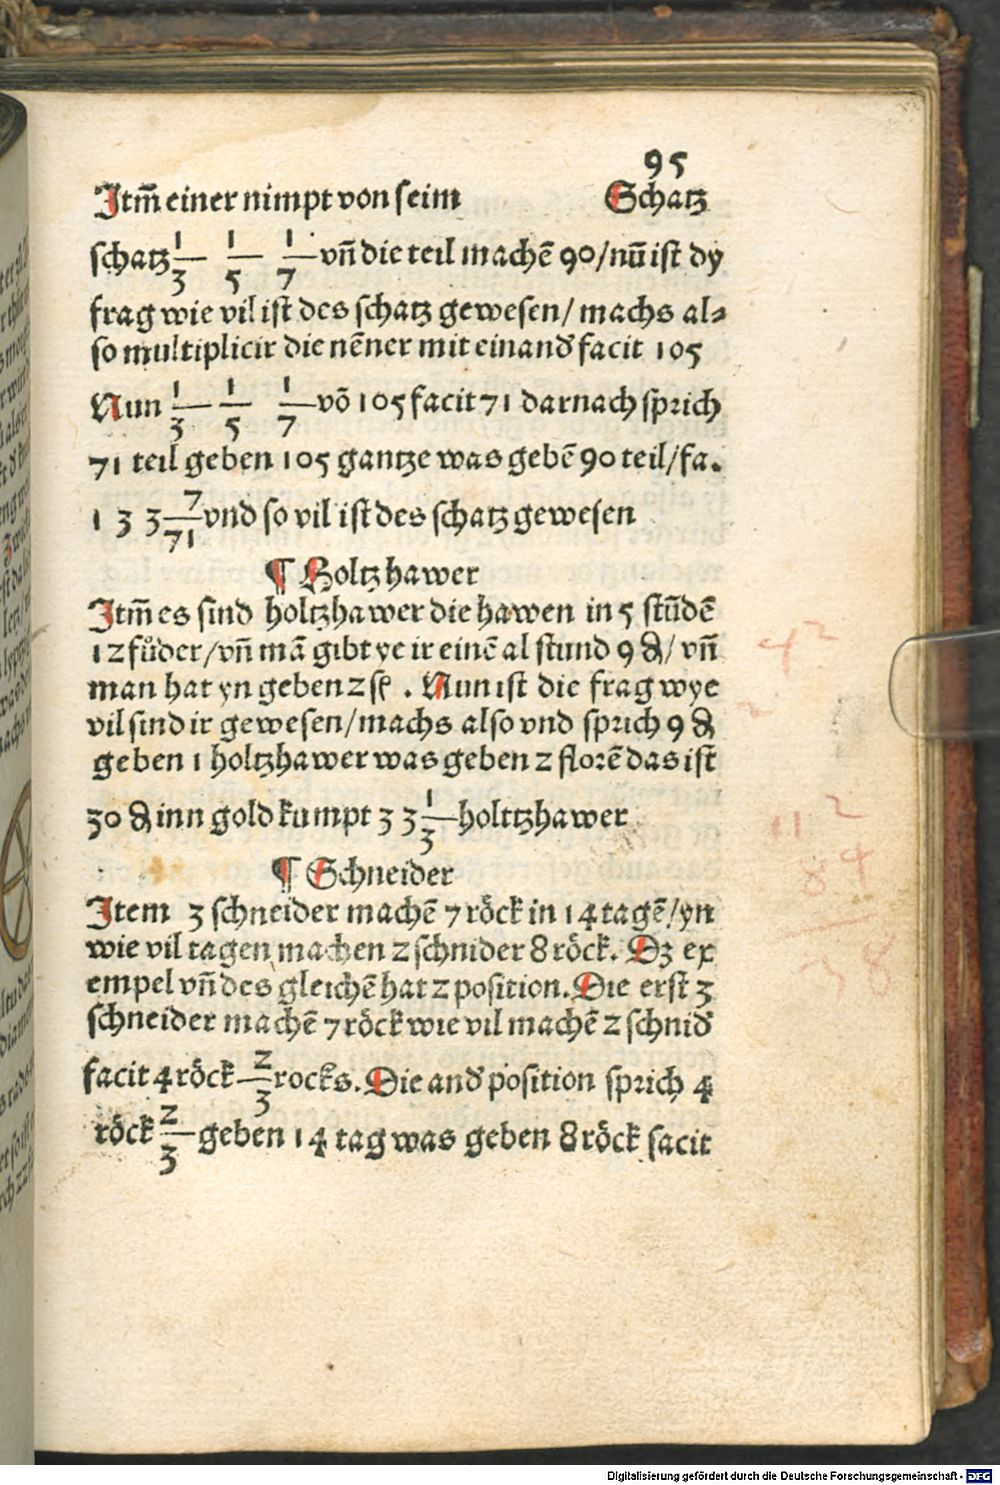 95
Itm̄ einer nimpt von seim Schatz
schatz 1/3 1/5 1/7 vn̄ die teil machē 90/nū ist dy
frag wie vil ist des schatz gewesen/ machs al⸗
so multiplicir die nēner mit einand̕ facit 105
Nun 1/3 1/5 1/7 vō 105 facit 71 darnach sprich
71 teil geben 105 gantze was gebē 90 teil/fa.
133 7/71 vnd so vil ist des schatz gewesen
¶ Holtzhawer
Itm̄ es sind holtzhawer die hawen in 5 stūdē
12 fůder/vn̄ mā gibt ye ir einē al stund 9 ₰/ vn̄
man hat yn geben 2 fl . Nun ist die frag wye
vil sind ir gewesen/machs also vnd sprich 9 ₰
geben 1 holtzhawer was geben 2 florē das ist
30 ₰ inn gold kumpt 33 1/3 holttzhawer
¶ Schneider
Item 3 schneider machē 7 röck in 14 tagē/yn
wie vil tagen machen 2 schnider 8 röck. Dz ex
empel vn̄ des gleichē hat 2 position. Die erst 3
schneider machē 7 röck wie vil machē 2 schnid̕
facit 4 röck 2/3 rocks. Die and̕ position sprich 4
röck 2/3 geben 14 tag was geben 8 röck facit
4 2
2
11 2
8 4
3 8
Digitalisierung gefördert durch die Deutsche Forschungsgemeinschaft - DFG